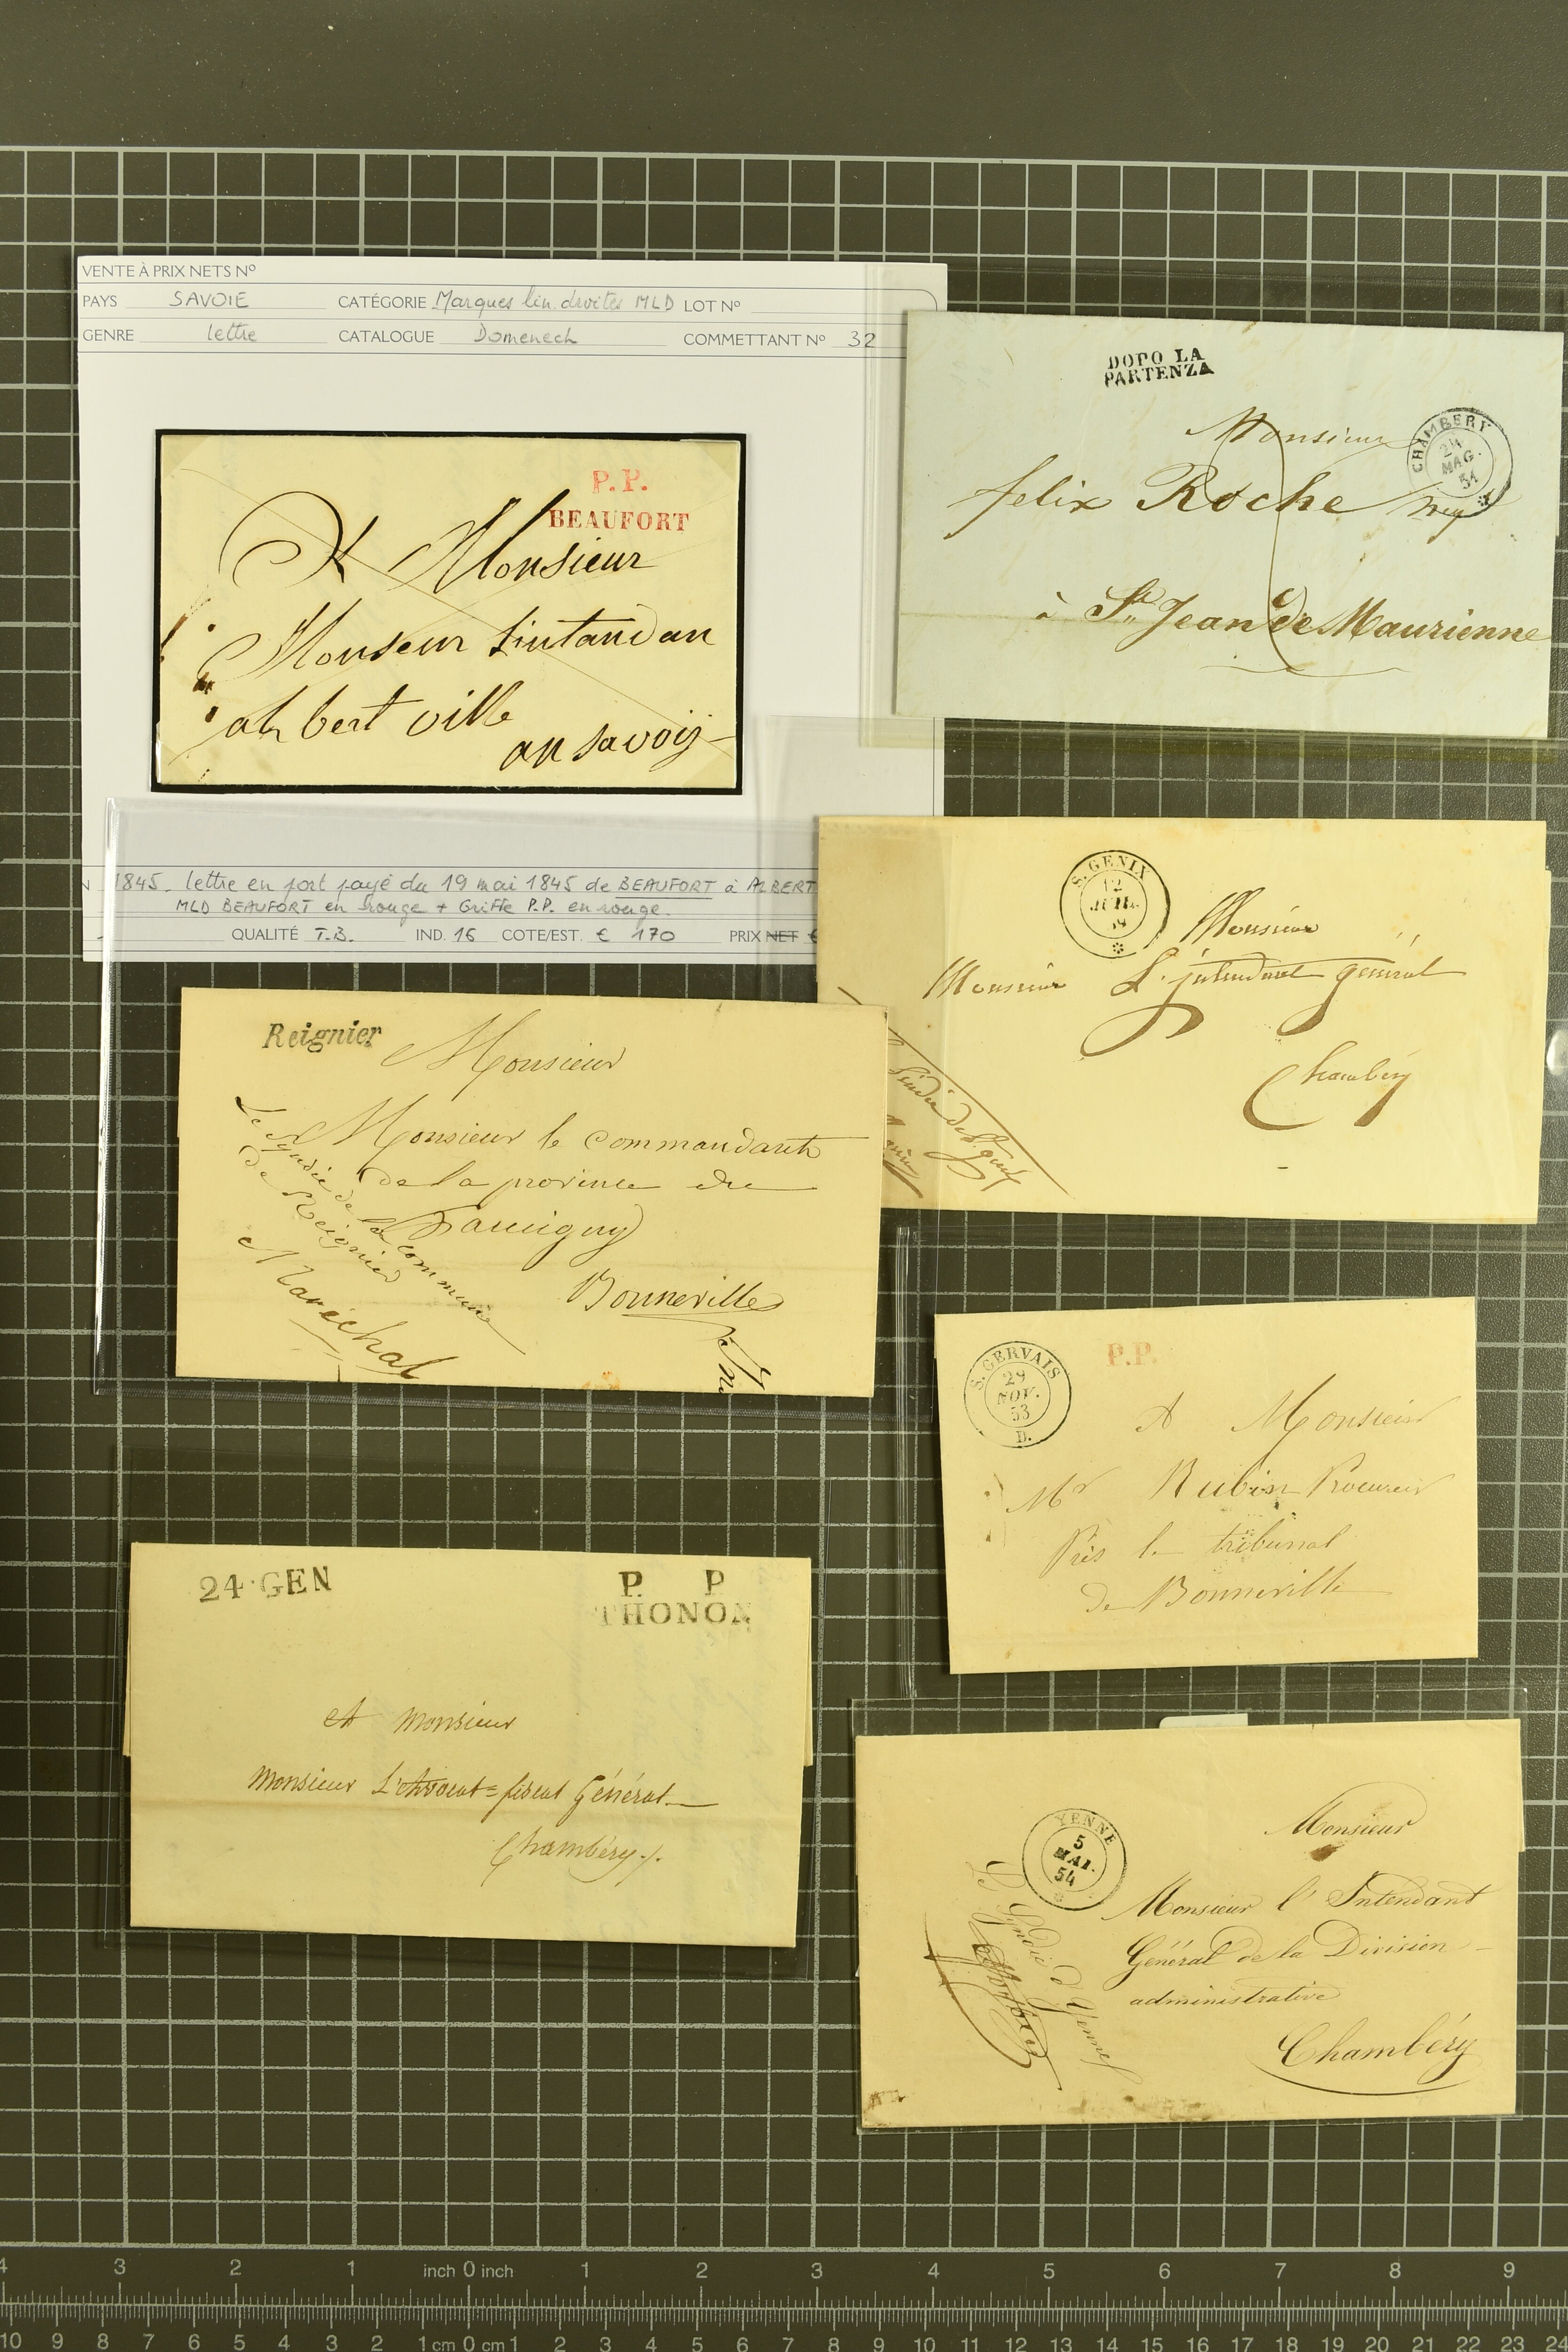 VENTE À PRIX NETS Nº
PAYS SAVOIE CATÉGORIE Marques lin. droites MLD LOT Nº
GENRE lettre CATALOGUE Domenech COMMETTANT Nº 32
P.P.
BEAUFORT
A Monsieur
Monseur Lintandan
al bert ville
an savoy
1845_ lettre en port payé du 19 mai 1845 de BEAUFORT à ALBERT
MLD BEAUFORT en rouge + Griffe P.P. en rouge.
QUALITÉ T.B. IND. 16 COTE/EST. € 170 PRIX NET €
DOPO LA
PARTENZA
CHAMBERY
24
MAG.
51
Monsieur
felix Roche
à St Jean de Maurienne
S. GENIX
12
JUIL.
Monsieur
Monsieur L'intendant général
Chambéry
Reignier
Monsieur
Monsieur le Commandant
de la province de
Faucigny
Bonneville
Le Syndic de la commune
de Reignier
Maréchal
S. GERVAIS
29
NOV.
53
D.
P.P.
A Monsieur
Mr Rubin Procureur
Près le tribunal
de Bonneville
24 GEN
P. P
THONON
A Monsieur
Monsieur L'Avocat=fiscal Général
Chambéry./.
YENNE
5
MAI.
54
Monsieur
Monsieur l'Intendant
Général de la Division
administrative
Chambéry
Le Syndic d'Yenne
4 3 2 1 inch 0 inch 1 2 3 4 5 6 7 8 9
10 9 8 7 6 5 4 3 2 1 cm 0 cm 1 2 3 4 5 6 7 8 9 10 11 12 13 14 15 16 17 18 19 20 21 22 23 24